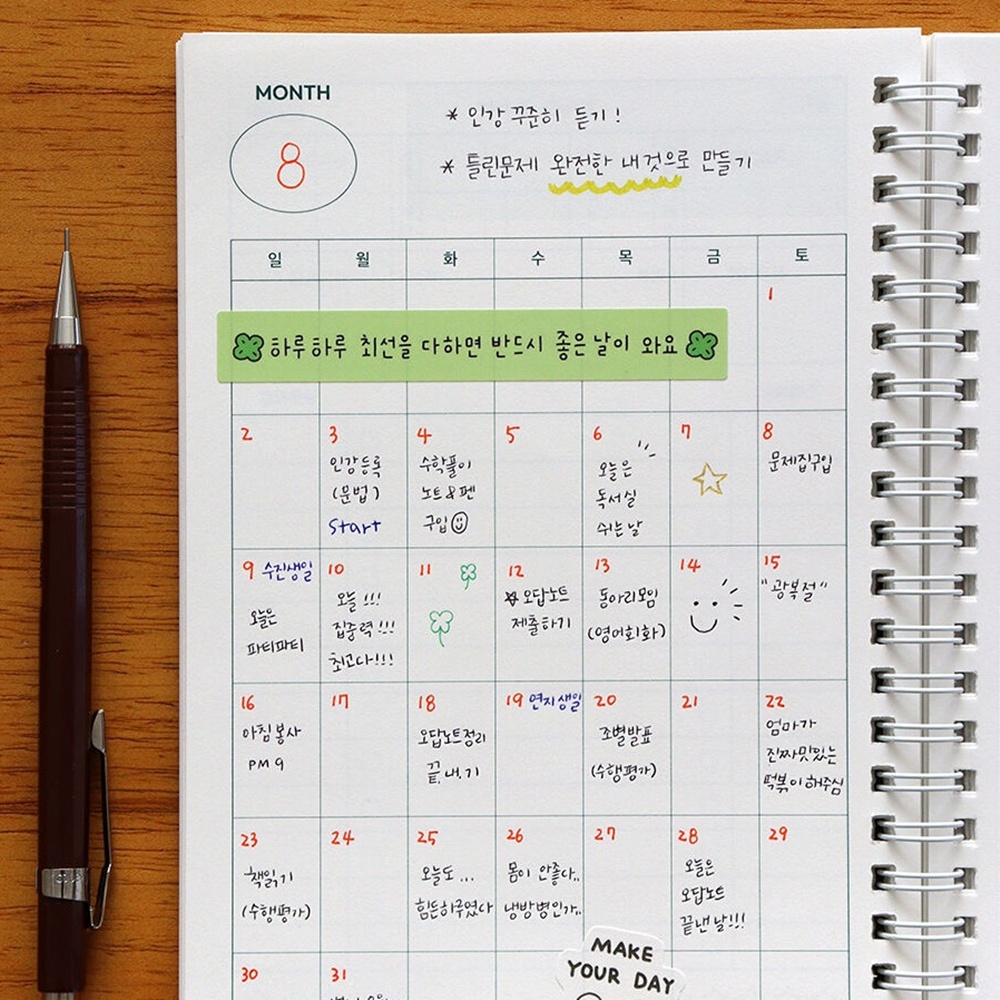 MONTH
8
* 인강 꾸준히 듣기!
* 틀린문제 완전한 내것으로 만들기
일 월 화 수 목 금 토
1
하루하루 최선을 다하면 반드시 좋은 날이 와요
2 3 4 5 6 7 8
인강등록
(문법)
Start
수학풀이
노트&펜
구입
오늘은
독서실
쉬는날
문제집구입
9 수진생일 10 11 12 13 14 15
오늘은
파티파티
오늘!!!
집중력!!!
최고다!!!
오답노트
제출하기
동아리모임
(영어회화)
"광복절"
16 17 18 19 연지생일 20 21 22
아침봉사
PM 9
오답노트정리
끝.내.기
조별발표
(수행평가)
엄마가
진짜맛있는
떡볶이해주심
23 24 25 26 27 28 29
책읽기
(수행평가)
오늘도...
힘든하루였다
몸이 안좋다..
냉방병인가..
오늘은
오답노트
끝낸날!!!
30 31
MAKE
YOUR DAY